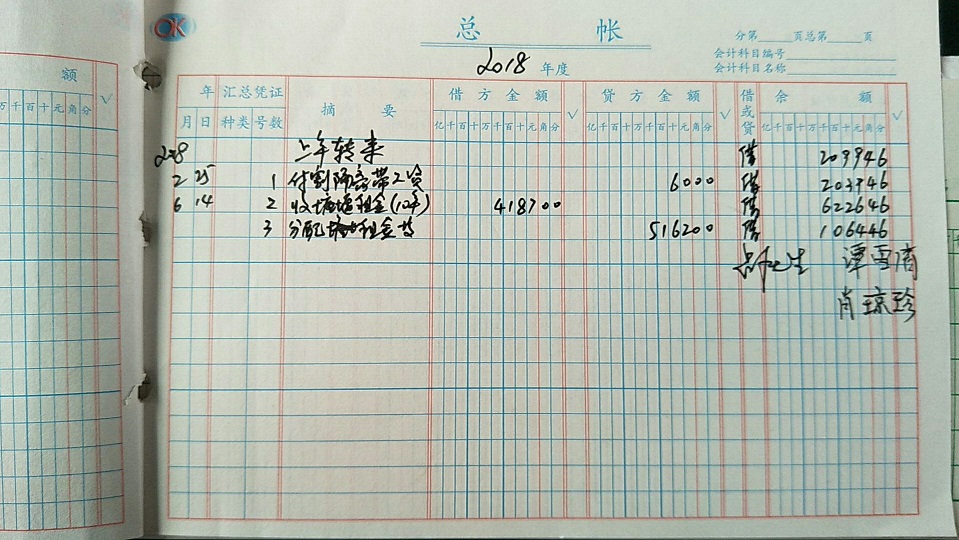 OK
总 帐
2018 年度
分第 页总第 页
会计科目编号
会计科目名称
额
万千百十元角分 √
年 汇总凭证 摘 要 借方金额 √ 贷方金额 √ 借或贷 余 额 √
月 日 种类 号数 亿千百十万千百十元角分 亿千百十万千百十元角分 亿千百十万千百十元角分
2018 上年转来 借 209946
2 25 1 付割隔离带工资 6000 借 203946
6 14 2 收塘堰租金(10年) 418700 借 622646
3 分配 租金 516200 借 106446
谭雪清
肖琼珍